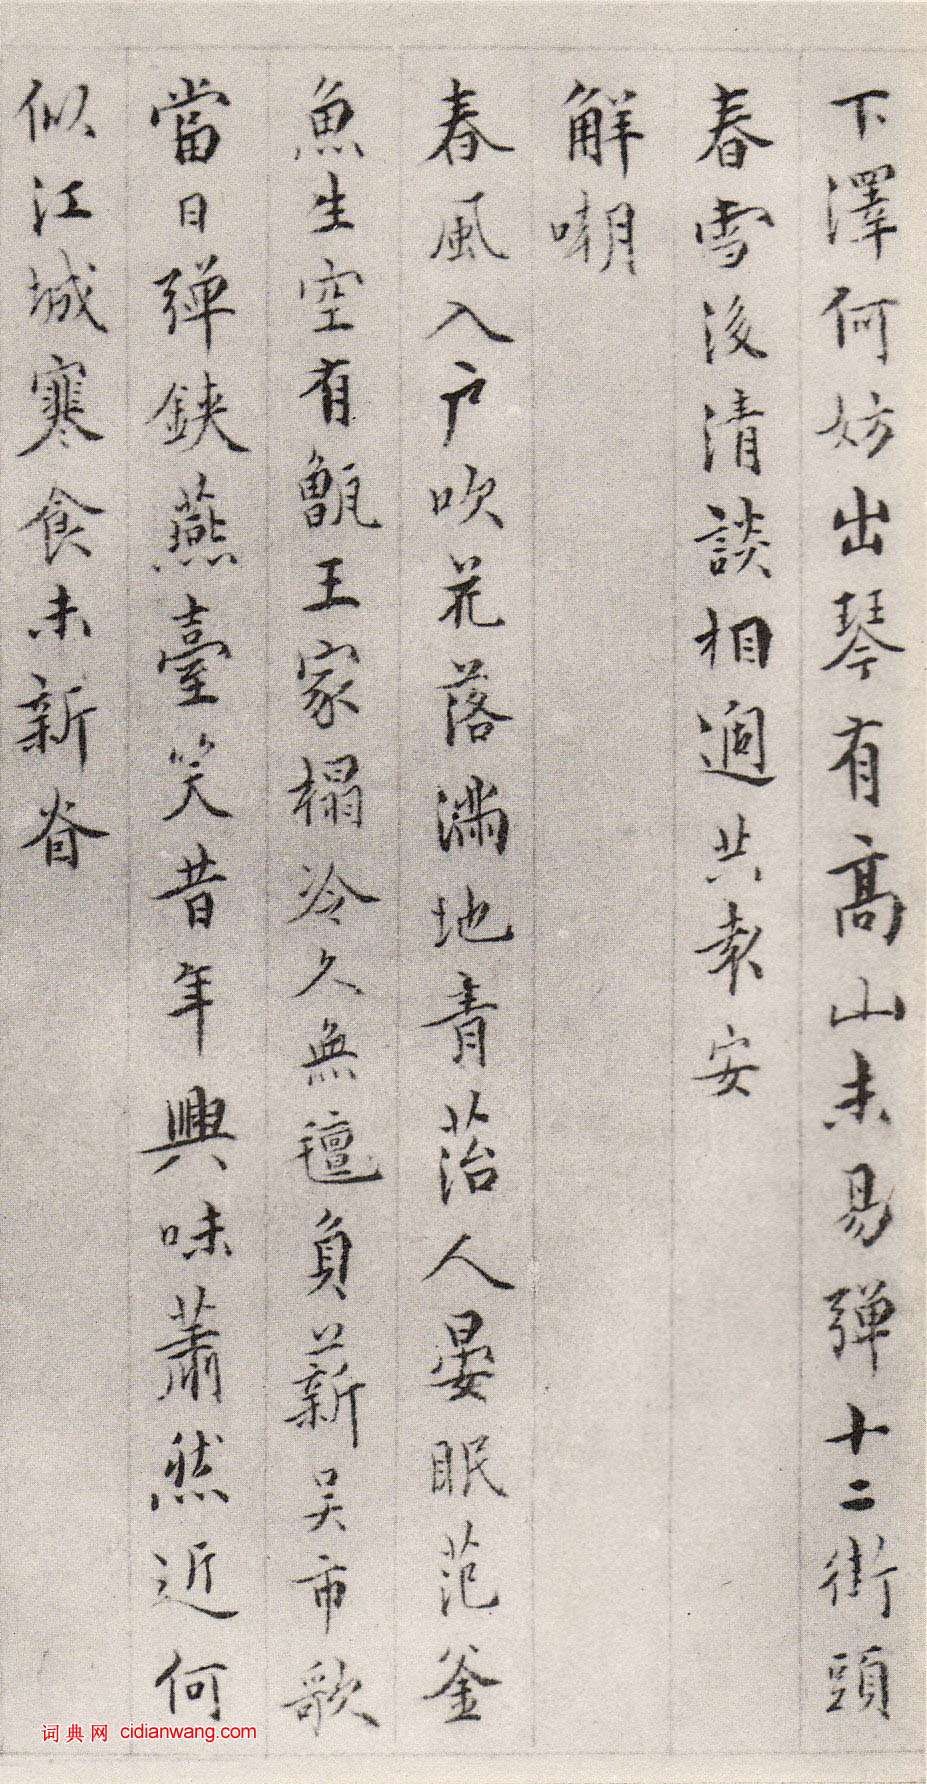 下澤何妨出琴有髙山未易弹十二街頭
春雪後清談相過共求安
解嘲
春風入户吹花落滿地青苔人晏眠范釜
魚生空有甑王家榻冷久無氊負薪吴市歌
當日弹鋏燕臺笑昔年興味蕭然近何
似江城寒食未新
词典网 cidianwang.com